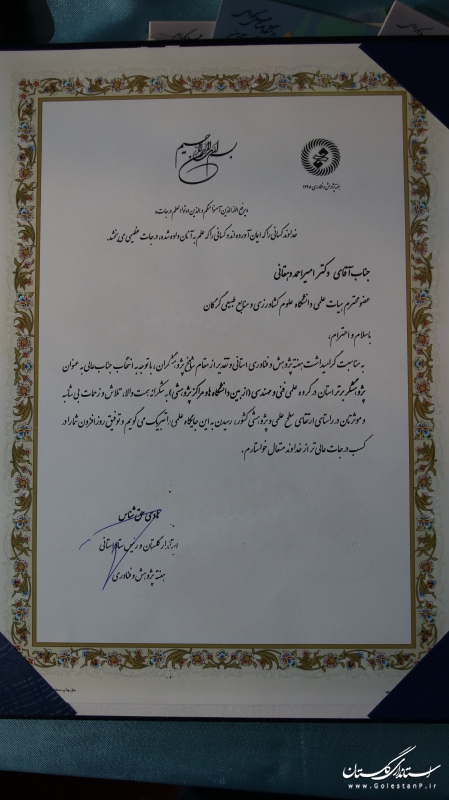 بسم الله الرحمن الرحیم
هفته پژوهش و فناوری ۱۳۹۸
«یرفع الله الذین آمنوا منکم و الذین اوتوا العلم درجات»
خداوند کسانی را که ایمان آورده اند و کسانی را که علم به آنان داده شده، درجات عظیمی می بخشد.
جناب آقای دکتر امیر احمد دهقانی
عضو محترم هیات علمی دانشگاه علوم کشاورزی و منابع طبیعی گرگان
با سلام و احترام،
به مناسبت گرامیداشت هفته پژوهش و فناوری استانی و تقدیر از مقام شامخ پژوهشگران، با توجه به انتخاب جناب عالی به عنوان
پژوهشگر برتر استان در گروه علمی فنی و مهندسی (از بین دانشگاه ها و مراکز پژوهشی) به شکرانه همت والا، تلاش و زحمات بی شائبه
و موثرتان در راستای ارتقای سطح علمی و پژوهشی کشور، رسیدن به این جایگاه علمی را تبریک می گویم و توفیق روز افزون شما را در
کسب درجات عالی تر از خداوند متعال خواستارم.
هادی حق شناس
استاندار گلستان و رئیس ستاد استانی
هفته پژوهش و فناوری
استانداری گلستان
www.GolestanP.ir